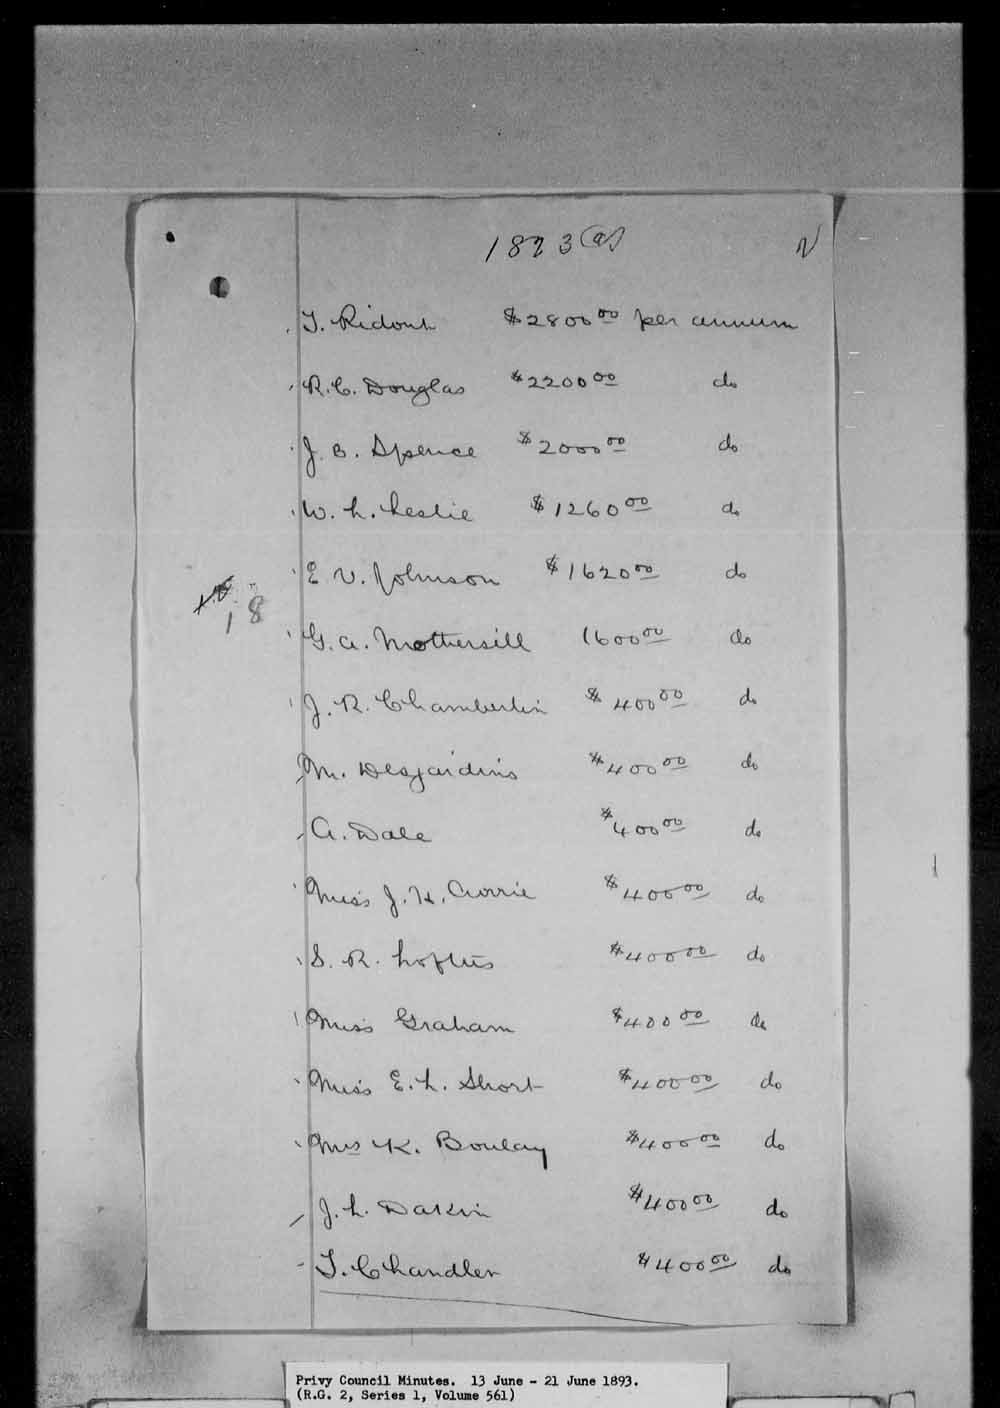 1893 (a)
T. Ridout $2800 00 per annum
R. C. Douglas $2200 00 do
J. B. Spence $2000 00 do
W. L. Leslie $1260 00 do
E. V. Johnson $1620 00 do
G. A. Mothersill 1600 00 do
J. R. Chamberlin $400 00 do
M. Desjardins $400 00 do
A. Dale $400 00 do
Miss J. H. Currie $400 00 do
S. R. Loftus $400 00 do
Miss Graham $400 00 do
Miss E. L. Short $400 00 do
Mrs K. Boulay $400 00 do
J. L. Dakin $400 00 do
T. Chandler $400 00 do
18
Privy Council Minutes. 13 June - 21 June 1893.
(R.G. 2, Series 1, Volume 561)